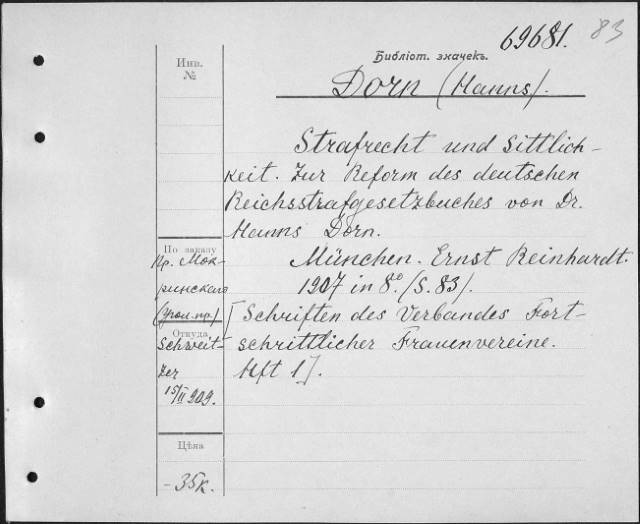 69681. 83
Инв.
№
Библіот. значекъ.
Dorn (Hanns).
Strafrecht und Sittlich-
keit. Zur Reform des deutschen
Reichsstrafgesetzbuches von Dr.
Hanns Dorn.
München. Ernst Reinhardt.
1907 in 8º. (S. 83).
[Schriften des Verbandes Fort-
schrittlicher Frauenvereine.
Hft 1].
По заказу
Пр. Мок-
ринскаго
(Угол. пр.)
Откуда
Schweit-
zer
15/II 909.
Цѣна
- 35 к.